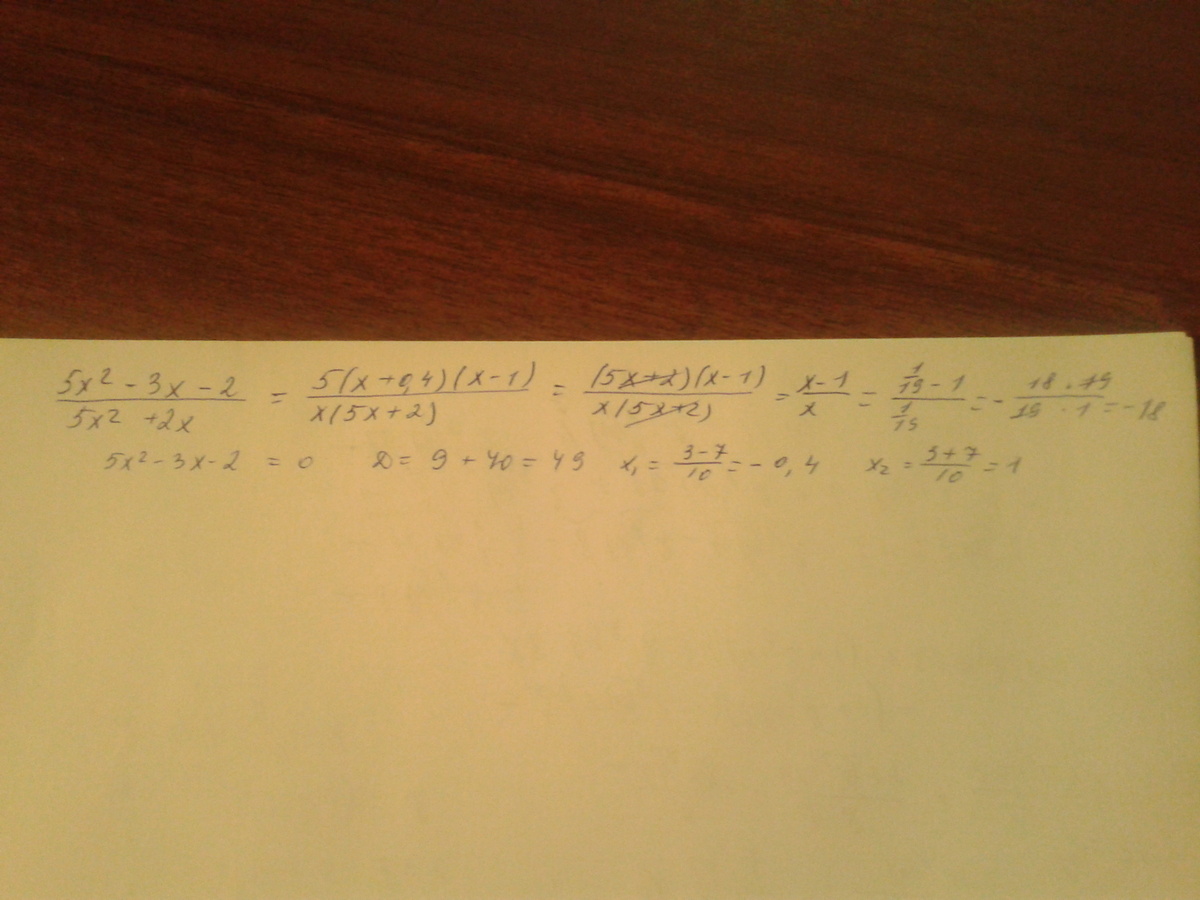 (5x² - 3x - 2)/(5x² + 2x) = 5(x + 0,4)(x - 1)/x(5x + 2) = (5x + 2)(x - 1)/x(5x + 2) = (x - 1)/x = (1/19 - 1)/(1/19) = - (18 · 19)/(19 · 1) = - 18
5x² - 3x - 2 = 0 D = 9 + 40 = 49 x₁ = (3 - 7)/10 = - 0,4 x₂ = (3 + 7)/10 = 1